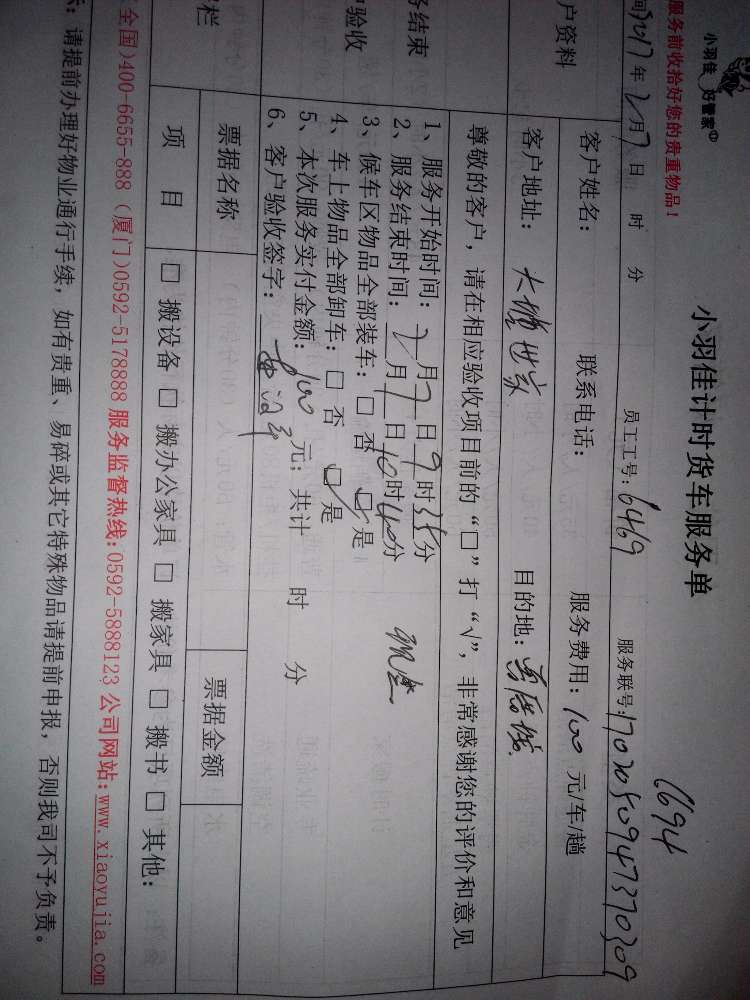 小羽佳 好管家
服务前收拾好您的贵重物品！
小羽佳计时货车服务单
6694
间2017年2月7日 时 分 员工工号：6469 服务联号：
户资料 客户姓名： 联系电话： 服务费用：100元/车/趟
客户地址： 目的地：
尊敬的客户，请在相应验收项目前的“□”打“√”，非常感谢您的评价和意见
务结束
户验收
1、服务开始时间：2月7日9时35分
2、服务结束时间：2月7日10时40分 现金
3、候车区物品全部装车：□ 否 ☑ 是
4、车上物品全部卸车：□ 否 ☑ 是
5、本次服务实付金额：100元；共计 时 分
6、客户验收签字：
栏 票据名称 票据金额
项 目 □ 搬设备 □ 搬办公家具 □ 搬家具 □ 搬书 □ 其他：
全国)400-6655-888（厦门)0592-5178888 服务监督热线：0592-5888123 公司网站：www.xiaoyujia.com
：请提前办理好物业通行手续，如有贵重、易碎或其它特殊物品请提前申报，否则我司不予负责。